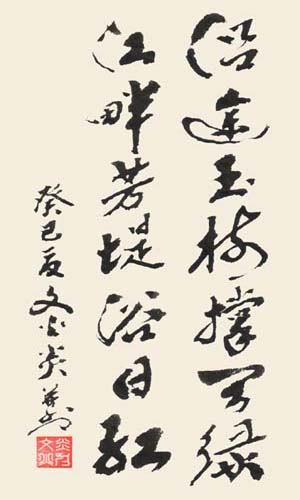 沿途玉树撑天绿
江畔芳堤浴日红
癸巳夏文炎并书